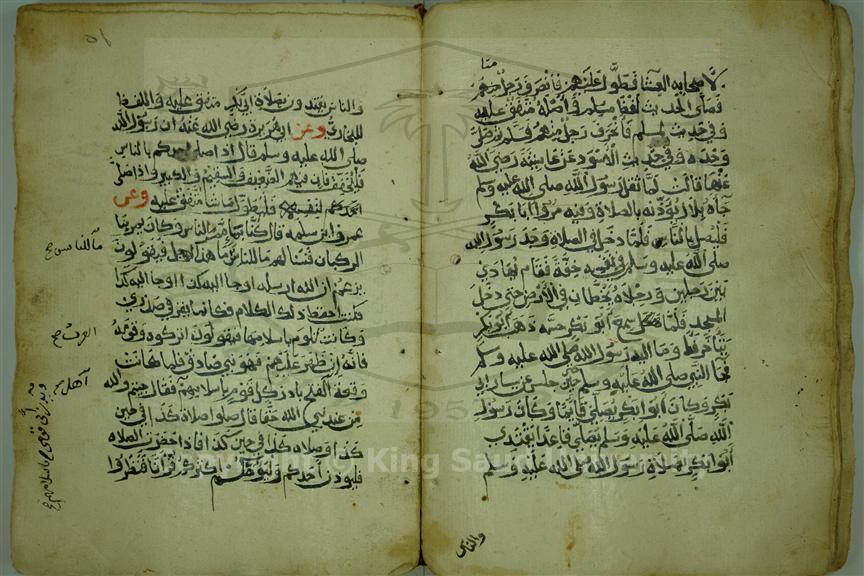 لاصحابه العشا فطول عليهم فانصرف رجل منهم
فصلى الحديث لفظ مسلم في اصله متفق عليه
وفي حديث لمسلم فانحرف رجل منهم فسلم ثم صلى
وحده وفي حديث الاسود عن عايشة رضي الله
عنها قالت لما ثقل رسول الله صلى الله عليه وسلم
جاه بلال يؤذنه بالصلاة وفيه مروا ابا بكر
فليصل بالناس فلما دخل في الصلاه وجد رسول الله
صلى الله عليه وسلم في نفسه خفة فقام يهادى
بين رجلين ورجلاه يخطان في الارض حتى دخل
المسجد فلما سمع ابو بكر حسه ذهب ابو بكر
يتاخر فاومأ اليه رسول الله صلى الله عليه وسلم
فجا النبي صلى الله عليه وسلم حتى جلس عن يسار ابي
بكر وكان ابو بكر يصلي قايما وكان رسول
الله صلى الله عليه وسلم يصلي قاعدا يقتدي
ابو بكر بصلاة رسول الله صلى الله عليه وسلم
والناس
والناس يقتدون بصلاة ابي بكر متفق عليه واللفظ
للبخاري وعن ابي هريرة رضي الله عنه ان رسول الله
صلى الله عليه وسلم قال اذا صلى احدكم بالناس
فليخفف فان فيهم الضعيف والسقيم والكبير واذا صلى
احدكم لنفسه فليطول ما شا متفق عليه وعن
عمرو ابن سلمه قال كنا بما ممر الناس وكان يمر بنا
الركبان فنسالهم ما للناس ما هذا الرجل فيقولون
يزعم ان الله ارسله اوحا اليه كذا اوحا اليه كذا
فكنت احفظ ذلك الكلام فكانما يقر في صدري
وكانت تلوم باسلامها فيقولون اتركوه وقومه
فانه ان ظهر عليهم فهو نبي صادق فلما كانت
وقعة الفتح بادر كل قوم باسلامهم فقال جيتكم والله
من عند نبي الله حقا قال صلوا صلاة كذا في حين
كذا وصلاة كذا في حين كذا فاذا حضرت الصلاه
فليوذن احدكم وليومكم اكثركم قرآنا فنظروا
ما للناس صح
العرب صح
King Saud University
195